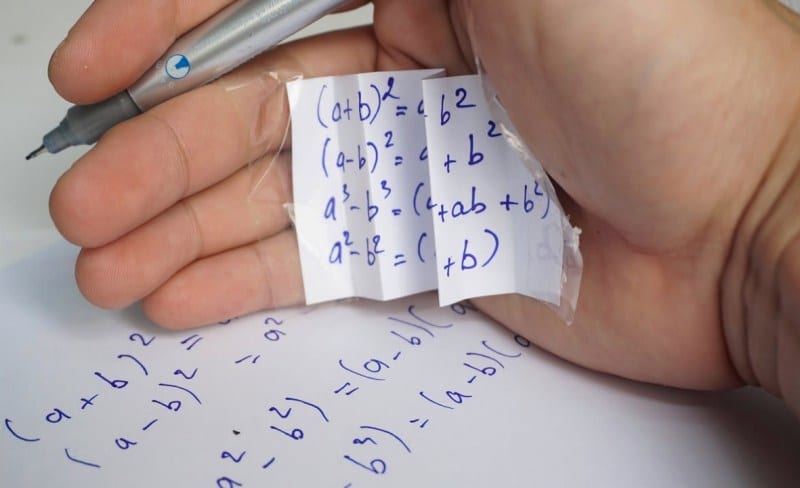 (a+b)² = b²
(a-b)² = + b²
a³-b³ = ( +ab +b²)
a²-b² = ( +b)
(a+b)² =
(a-b)² = a²
a² - b²) = (a-b)(a
- b³) = (a-b)(a